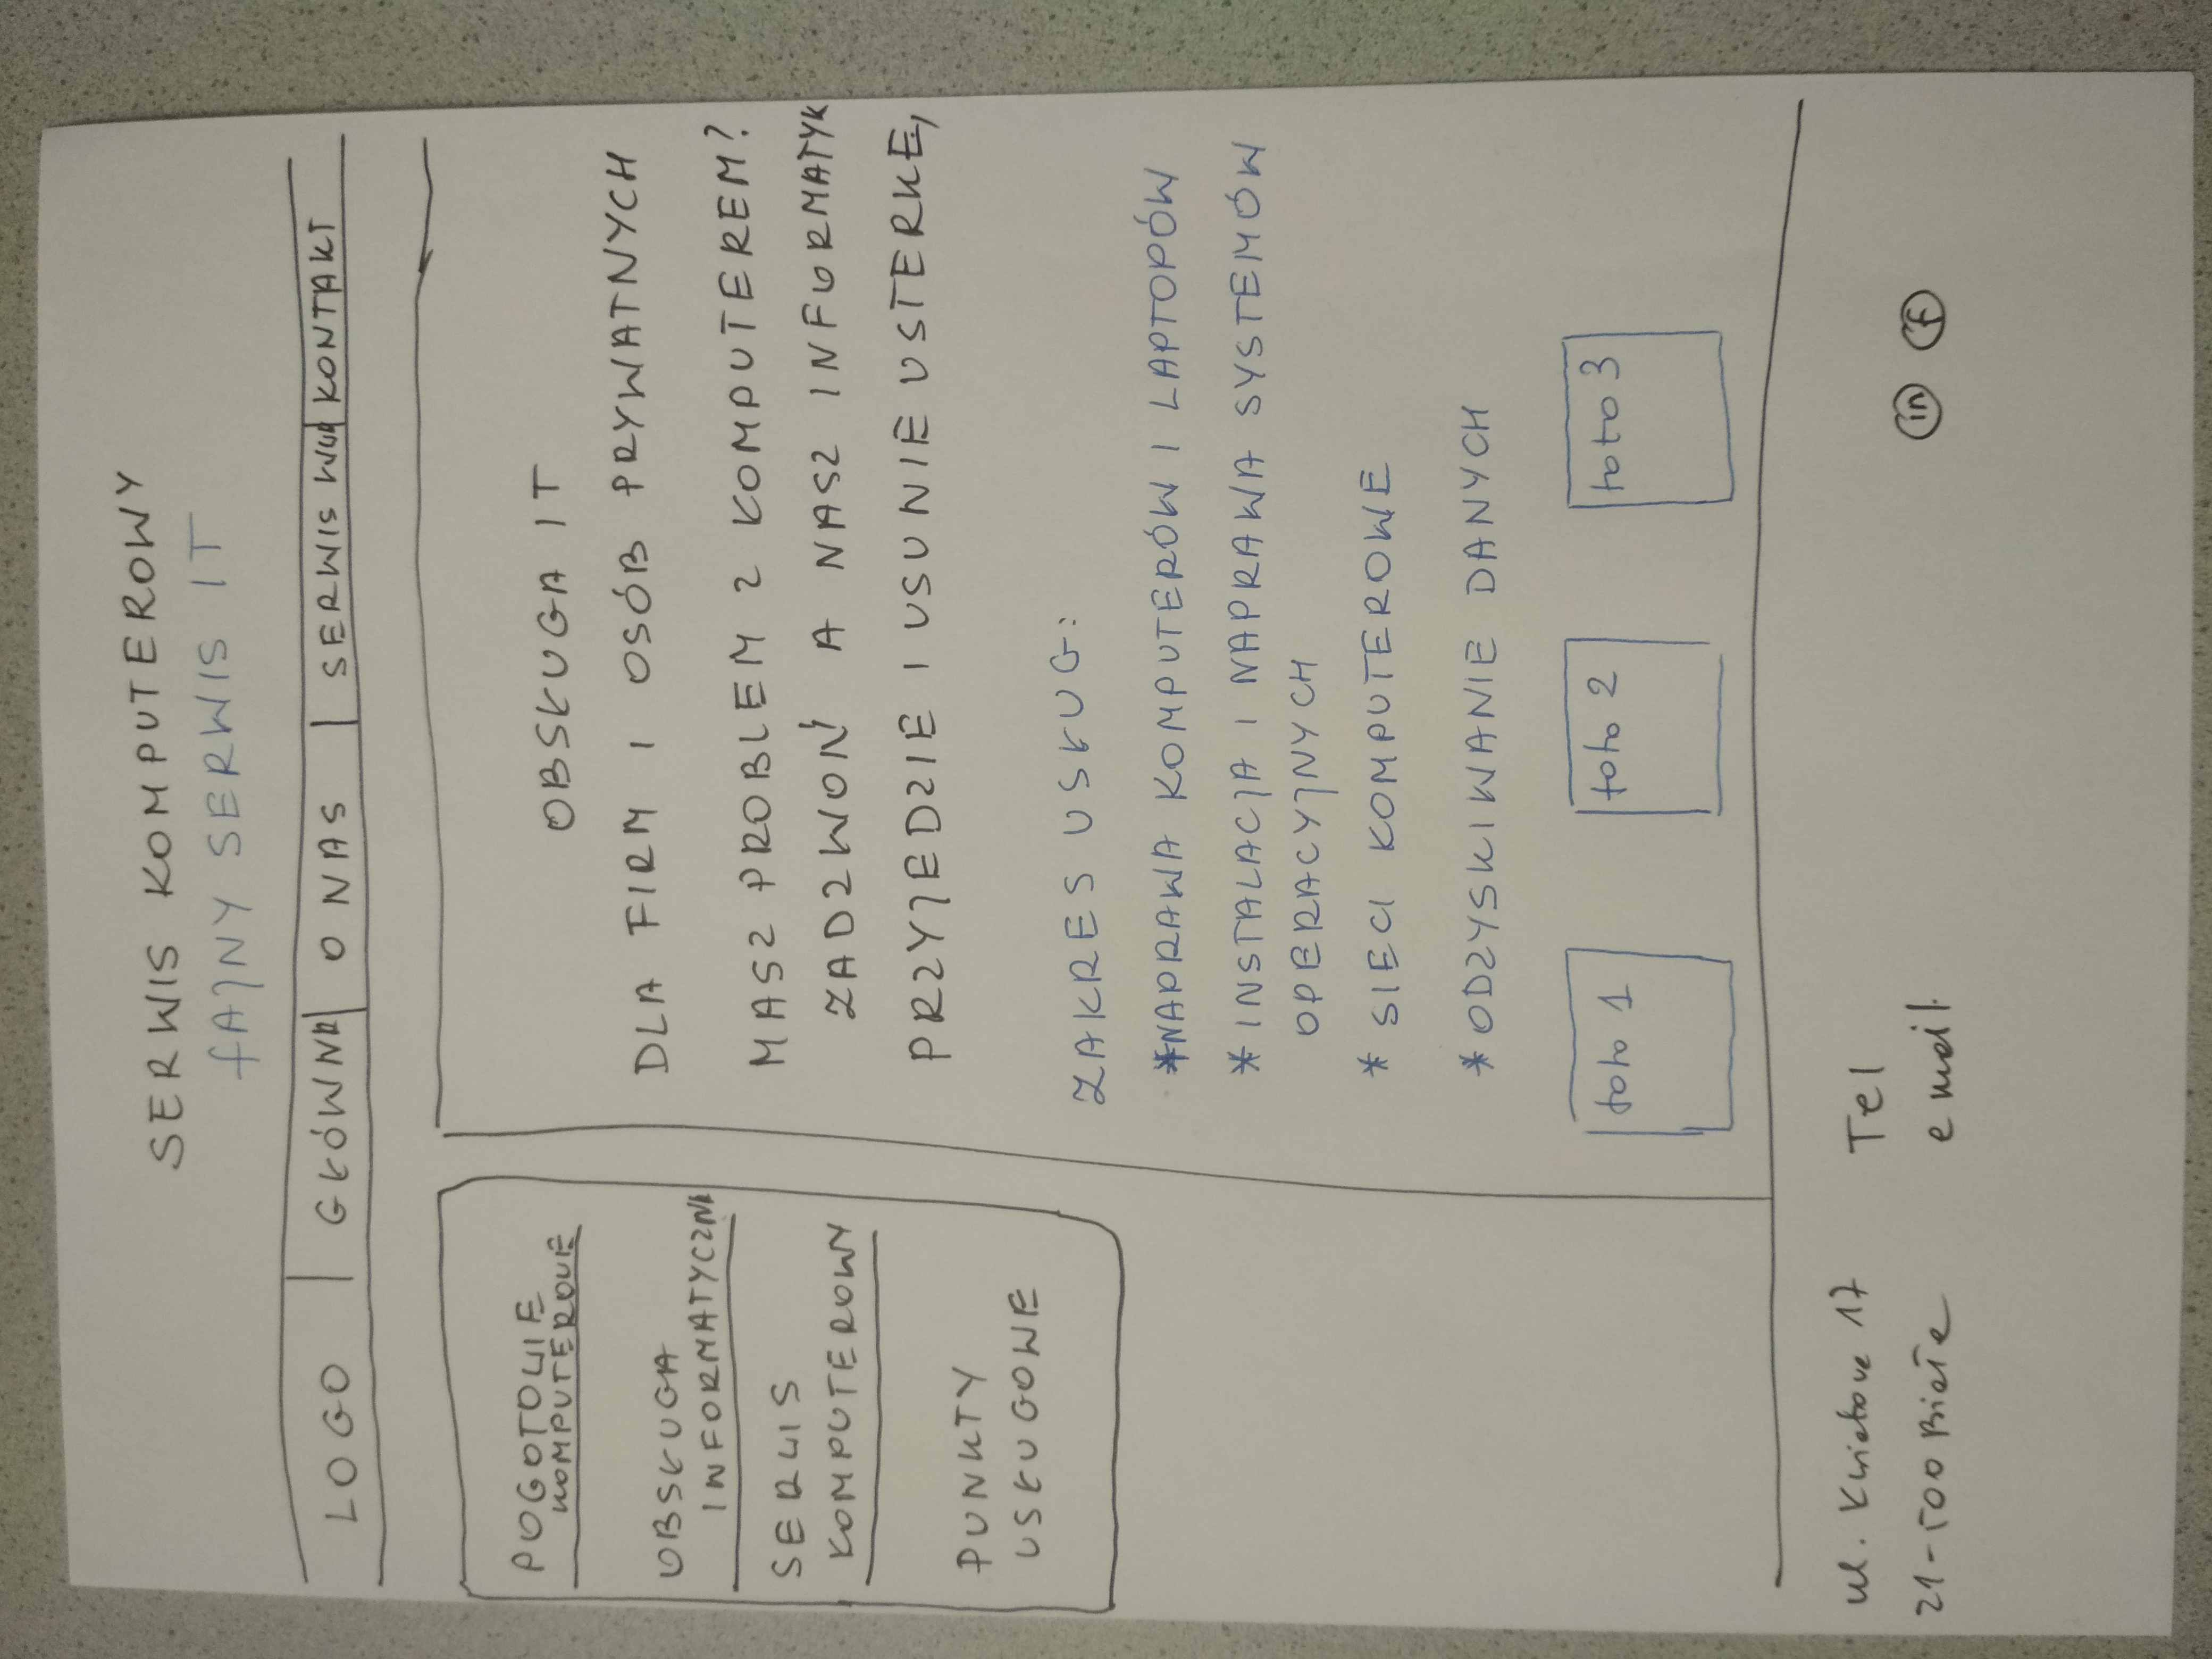 SERWIS KOMPUTEROWY
fAJNY SERWIS IT
LOGO GŁÓWNA O NAS SERWIS KONTAKT
POGOTOWIE
KOMPUTEROWE
OBSŁUGA
INFORMATYCZNA
SERWIS
KOMPUTEROWY
PUNKTY
USŁUGOWE
OBSŁUGA IT
DLA FIRM I OSÓB PRYWATNYCH
MASZ PROBLEM Z KOMPUTEREM?
ZADZWOŃ A NASZ INFORMATYK
PRZYJEDZIE I USUNIE USTERKĘ,
ZAKRES USŁUG:
*NAPRAWA KOMPUTERÓW I LAPTOPÓW
* INSTALACJA I NAPRAWA SYSTEMÓW
OPERACYJNYCH
* SIECI KOMPUTEROWE
* ODZYSKIWANIE DANYCH
foto 1 foto 2 foto 3
ul. 17
21-500 Biała
Tel
email
in f